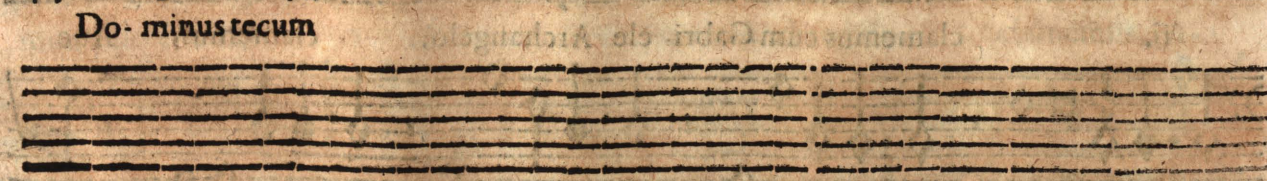 Do- minus tecum